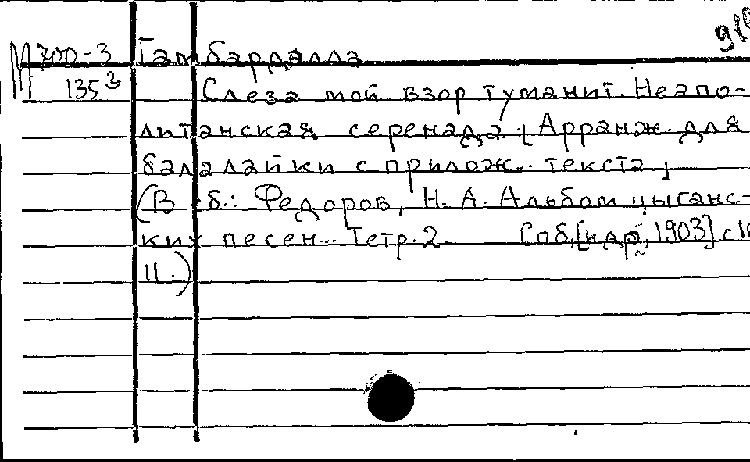 М 700-3 Гамбардалла
135³ Слеза мой взор туманит. Неапо-
литанская серенада [Арранж. для
балалайки с прилож. текста]
(В сб.: Федоров, Н. А. Альбом цыганс-
ких песен. Тетр. 2. Спб, [ц. др, 1903] с 10
11.)